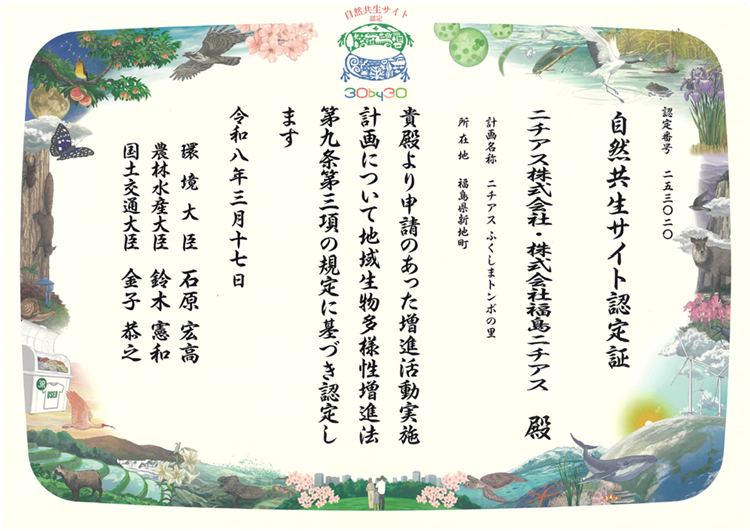 自然共生サイト
認定
30by30
認定番号 二五三〇二〇
自然共生サイト認定証
ニチアス株式会社・株式会社福島ニチアス 殿
計画名称 ニチアス ふくしまトンボの里
所在地 福島県新地町
貴殿より申請のあった増進活動実施
計画について地域生物多様性増進法
第九条第三項の規定に基づき認定し
ます
令和八年三月十七日
環境大臣 石原宏高
農林水産大臣 鈴木憲和
国土交通大臣 金子恭之
3R
USED